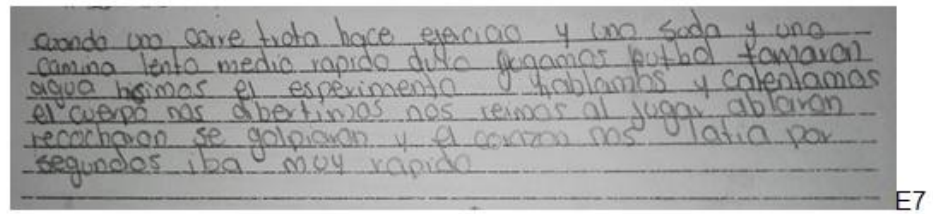 cuando uno corre trota hace ejercicio y uno Suda y uno
camina lento medio rapido duro jugamos futbol tomaron
agua hisimos el esperimento hablamos y calentamos
el cuerpo nos dibertimos nos reimos al jugar ablaron
recocharon se golpiaron y el corazon nos latia por
segundos iba muy rapido
E7